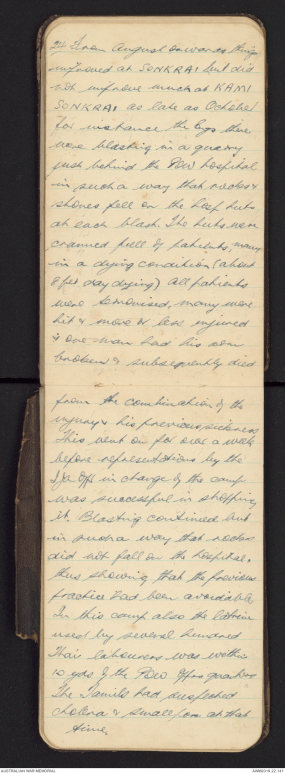 24 From August onwards things
improved at SONKRAI but did
not improve much at KAMI
SONKRAI as late as October
for instance the Engs there
were blasting in a quarry
just behind the POW hospital
in such a way that rocks &
stones fell on the hosp huts
at each blast. The huts were
crammed full of patients, many
in a dying condition (about
8 per day dying) All patients
were terrorised, many were
hit & more or less injured
& one man had his arm
broken & subsequently died
from the combination of the
injury & his previous sickness,
This went on for over a week
before representations by the
IJA Off in charge of the camp
was successful in stopping
it. Blasting continued but
in such a way that rocks
did not fall on the hospital,
thus showing that the previous
practice had been avoidable
In this camp also the latrine
used by several hundred
Thai labourers was within
10 yds of the POW Offrs quarters
The Tamils had suspected
cholera & small pox at that
time.
AUSTRALIAN WAR MEMORIAL